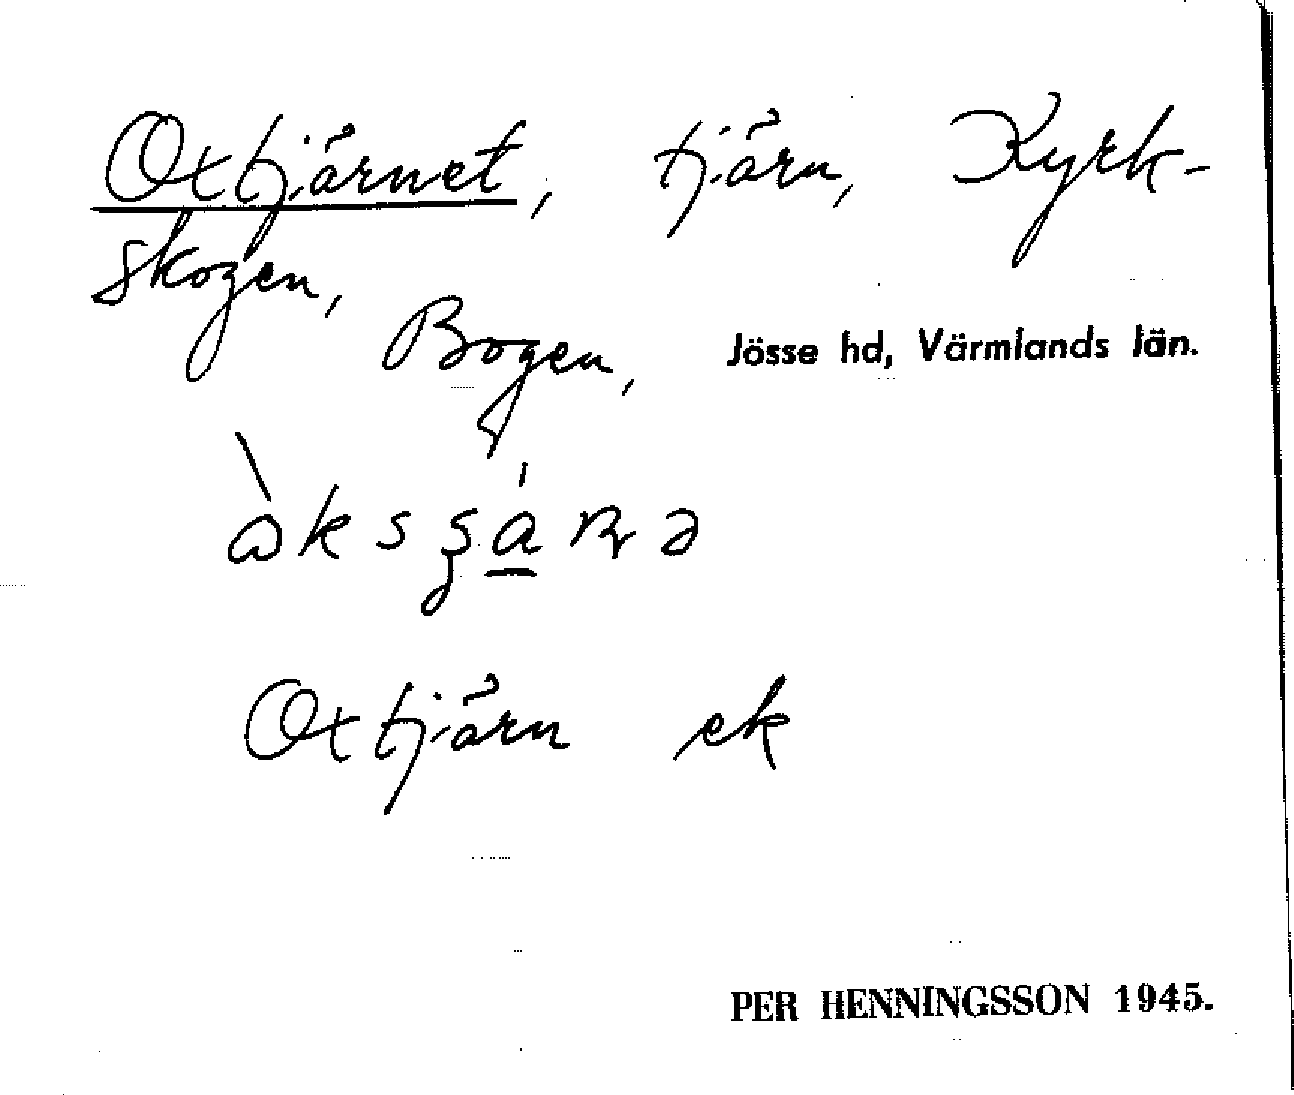 Oxtjärnet, tjärn, Kyrk-
skogen,
Bogen, Jösse hd, Värmlands län.
Oxtjärn ek
PER HENNINGSSON 1945.